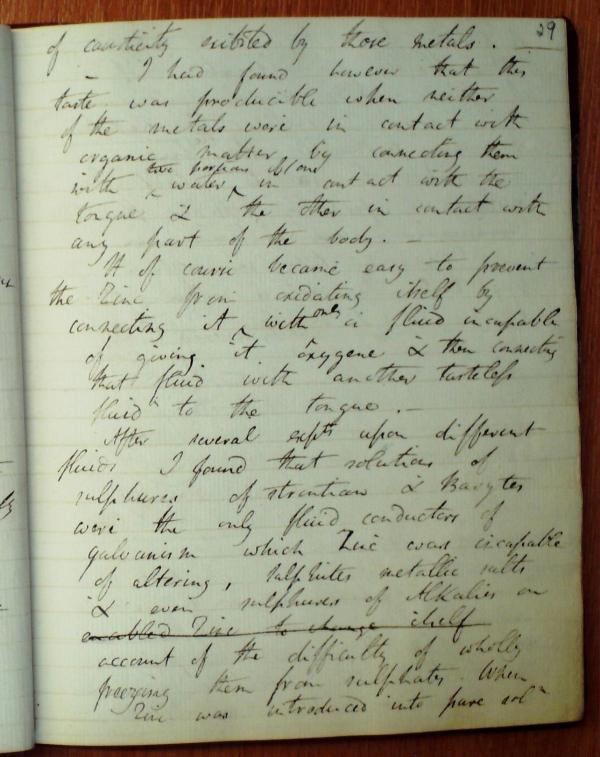 29
of causticity exibited by those metals.
– I had found however that this
taste was producible when neither
of the metals were in contact with
organic matter by connecting them
two portions of one
with water in contact with the
tongue & the other in contact with
any part of the body. –
It of course became easy to prevent
the Zinc from oxidating itself by
connecting it with only a fluid incapable
of giving it oxygene & then connecting
that fluid with another tasteless
fluid to the tongue. –
After several expts upon different
fluids I found that solutions of
sulphures of strontian & Barytes
were the only fluid conductors of
galvanism which Zinc was incapable
of altering, Sulphites metallic salts
& even sulphures of Alkalies on
enabled Zinc to change itself
account of the difficulty of wholly
freeing them from sulphates. When
Zinc was introduced into pure soln